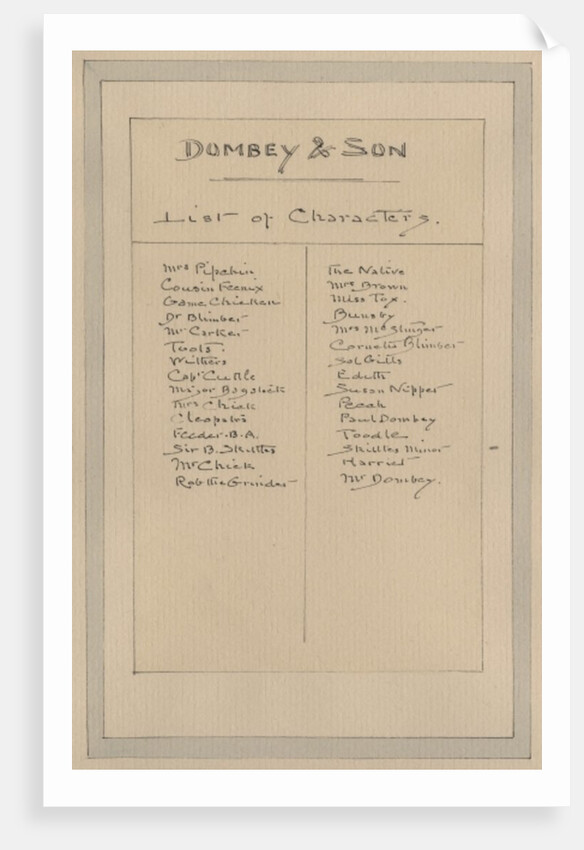 DOMBEY & SON
List of Characters.
Mrs Pipchin
Cousin Feenix
Game Chicken
Dr Blimber
Mr Carker
Toots.
Withers
Capt Cuttle
Major Bagstock
Mrs Chick
Cleopatra
Feeder. B.A.
Sir B. Skettles
Mr Chick
Rob the Grinder
The Native
Mrs Brown
Miss Tox.
Bunsby
Mrs McStinger
Cornelia Blimber
Sol Gills
Edith
Susan Nipper
Perch
Paul Dombey
Toodle
Skittles Minor
Harriet
Mr Dombey.